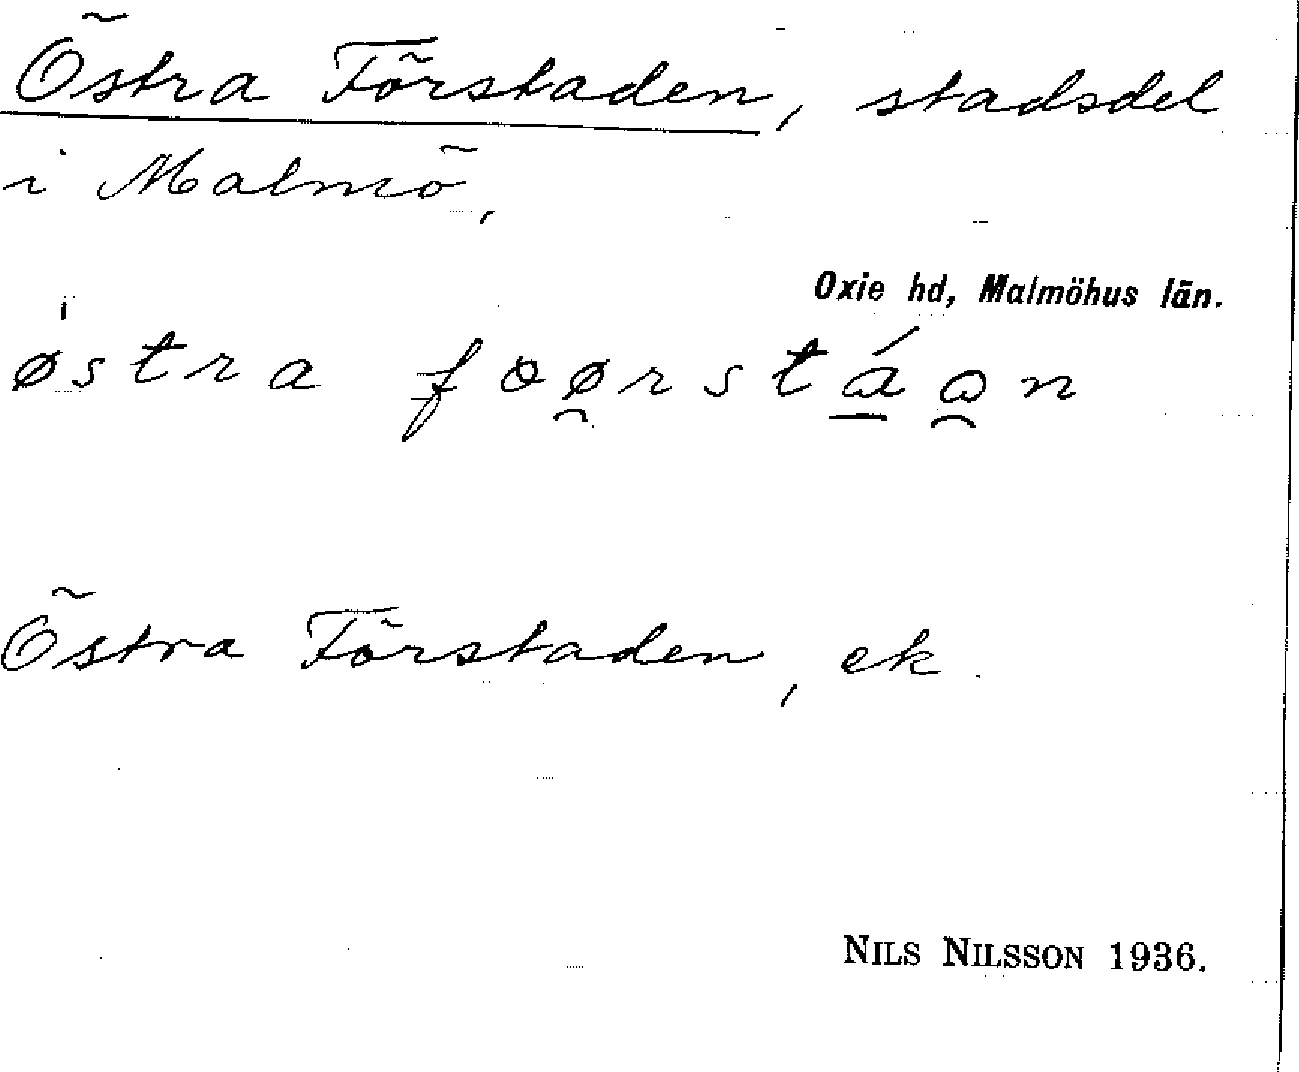 Östra Förstaden, stadsdel
i Malmö,
Oxie hd, Malmöhus län.
østra foørstáan
Östra Förstaden, ek.
NILS NILSSON 1936.